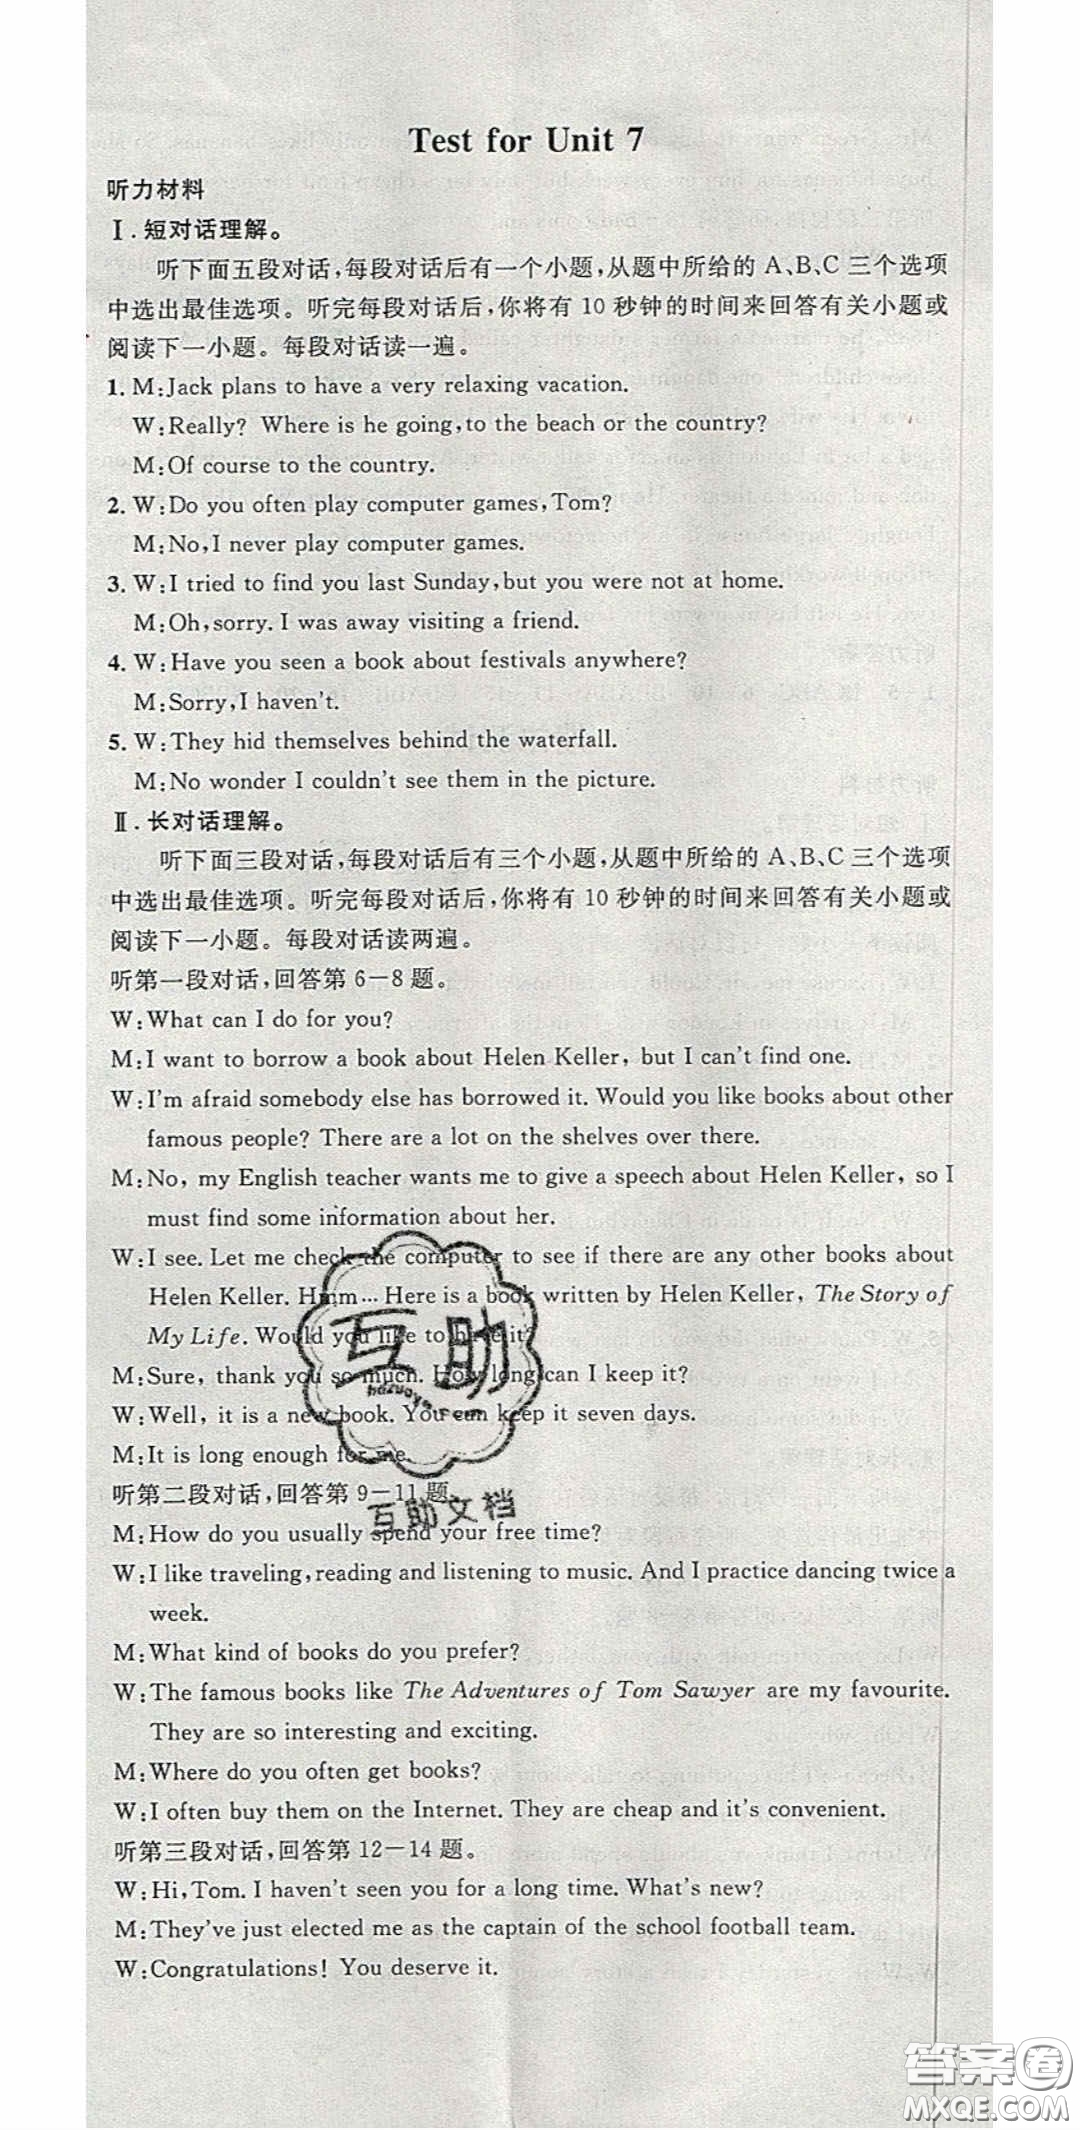 Test for Unit 7
听力材料
Ⅰ.短对话理解。
听下面五段对话,每段对话后有一个小题,从题中所给的 A、B、C 三个选项
中选出最佳选项。听完每段对话后,你将有 10 秒钟的时间来回答有关小题或
阅读下一小题。每段对话读一遍。
1. M:Jack plans to have a very relaxing vacation.
W:Really? Where is he going,to the beach or the country?
M:Of course to the country.
2. W:Do you often play computer games,Tom?
M:No,I never play computer games.
3. W:I tried to find you last Sunday,but you were not at home.
M:Oh,sorry. I was away visiting a friend.
4. W:Have you seen a book about festivals anywhere?
M:Sorry,I haven't.
5. W:They hid themselves behind the waterfall.
M:No wonder I couldn't see them in the picture.
Ⅱ.长对话理解。
听下面三段对话,每段对话后有三个小题,从题中所给的 A、B、C 三个选项
中选出最佳选项。听完每段对话后,你将有 10 秒钟的时间来回答有关小题或
阅读下一小题。每段对话读两遍。
听第一段对话,回答第 6－8 题。
W:What can I do for you?
M:I want to borrow a book about Helen Keller, but I can't find one.
W:I'm afraid somebody else has borrowed it. Would you like books about other
famous people? There are a lot on the shelves over there.
M:No, my English teacher wants me to give a speech about Helen Keller, so I
must find some information about her.
W:I see. Let me check the computer to see if there are any other books about
Helen Keller. Hmm… Here is a book written by Helen Keller, The Story of
My Life. Would you like to have it?
M:Sure, thank you so much. How long can I keep it?
W:Well, it is a new book. You can keep it seven days.
M:It is long enough for me.
听第二段对话,回答第 9－11 题。
M:How do you usually spend your free time?
W:I like traveling,reading and listening to music. And I practice dancing twice a
week.
M:What kind of books do you prefer?
W:The famous books like The Adventures of Tom Sawyer are my favourite.
They are so interesting and exciting.
M:Where do you often get books?
W:I often buy them on the Internet. They are cheap and it's convenient.
听第三段对话,回答第 12－14 题。
W:Hi,Tom. I haven't seen you for a long time. What's new?
M:They've just elected me as the captain of the school football team.
W:Congratulations! You deserve it.
互助
互助文档
答案圈
MXQE.COM